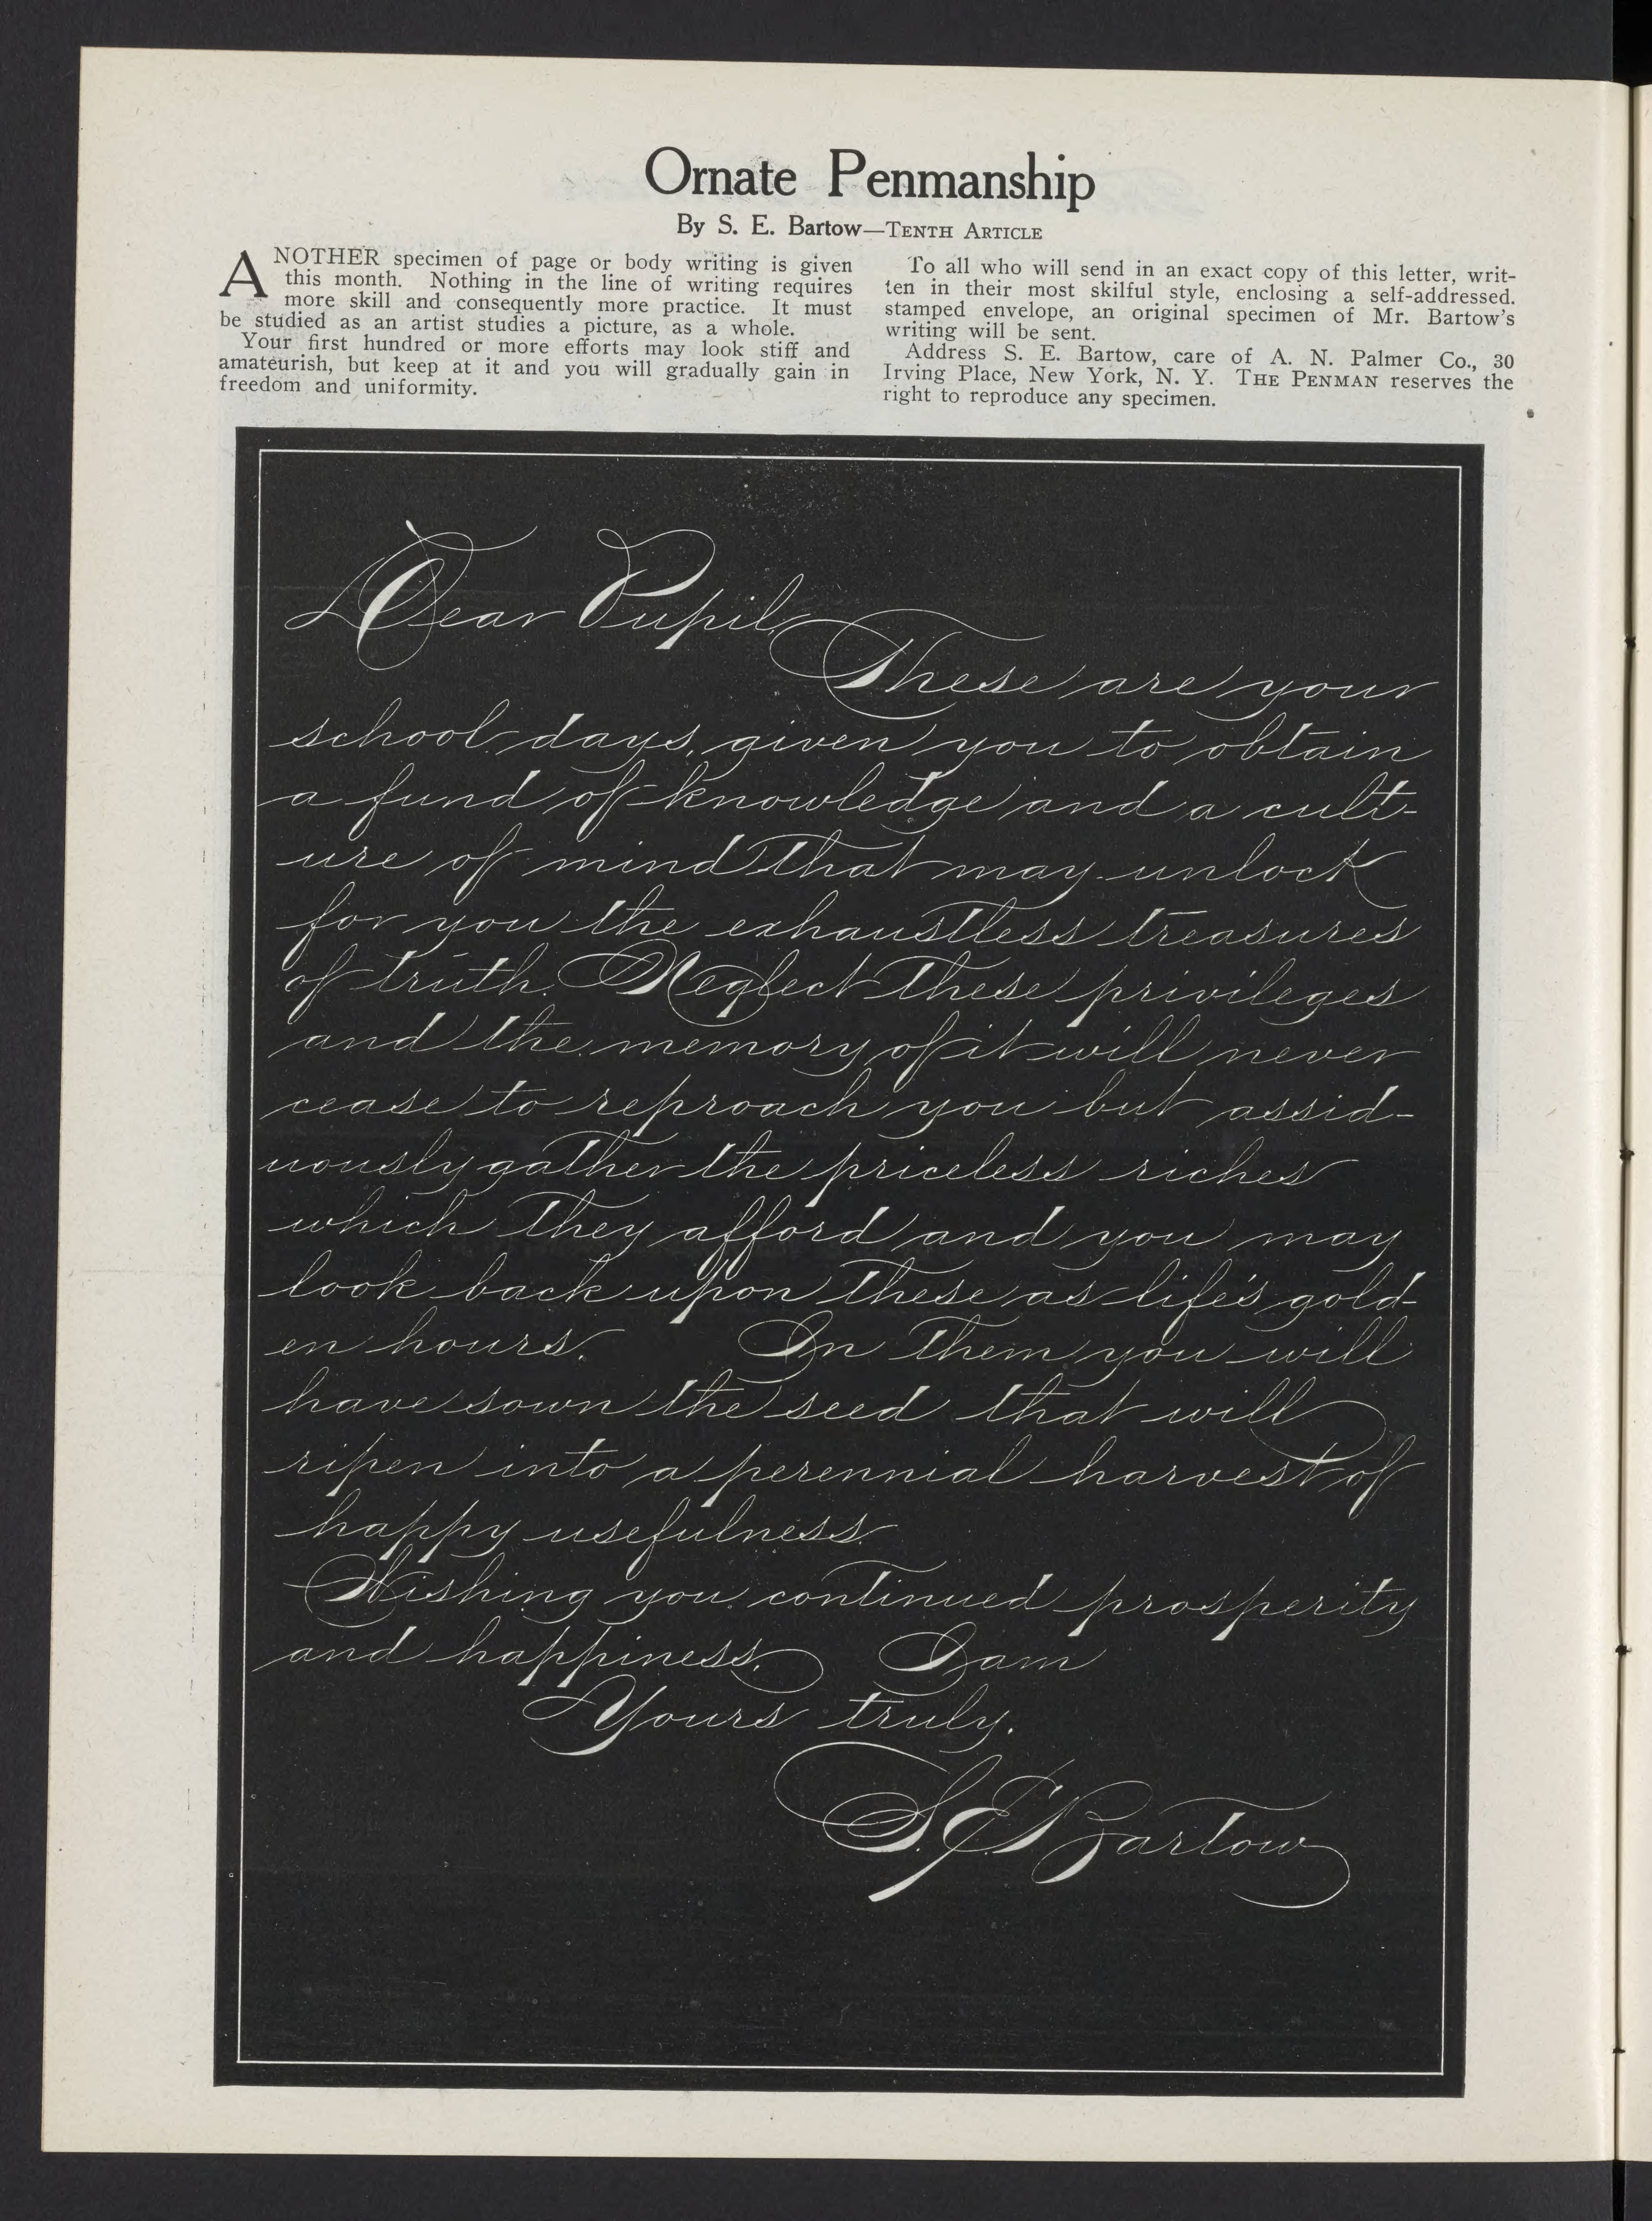 Ornate Penmanship
By S. E. Bartow—TENTH ARTICLE
ANOTHER specimen of page or body writing is given
this month. Nothing in the line of writing requires
more skill and consequently more practice. It must
be studied as an artist studies a picture, as a whole.
Your first hundred or more efforts may look stiff and
amateurish, but keep at it and you will gradually gain in
freedom and uniformity.
To all who will send in an exact copy of this letter, writ-
ten in their most skilful style, enclosing a self-addressed.
stamped envelope, an original specimen of Mr. Bartow's
writing will be sent.
Address S. E. Bartow, care of A. N. Palmer Co., 30
Irving Place, New York, N. Y. THE PENMAN reserves the
right to reproduce any specimen.
Dear Pupil,
These are your
school days, given you to obtain
a fund of knowledge and a cult-
ure of mind that may unlock
for you the exhaustless treasures
of truth. Neglect these privileges
and the memory of it will never
cease to reproach you but assid-
uously gather the priceless riches
which they afford and you may
look back upon these as life's gold-
en hours. In them you will
have sown the seed that will
ripen into a perennial harvest of
happy usefulness.
Wishing you continued prosperity
and happiness, I am
Yours truly.
S. E. Bartow